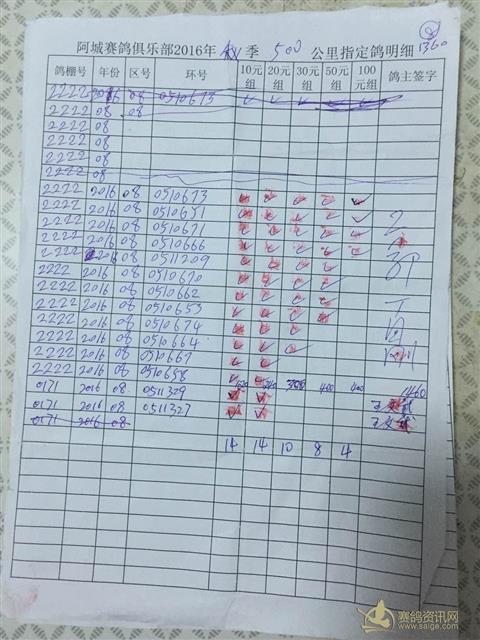 阿城赛鸽俱乐部2016年 秋 季 500 公里指定鸽明细 1360
鸽棚号 年份 区号 环号 10元组 20元组 30元组 50元组 100元组 鸽主签字
2222 2016 08 0510673
2222 08 08
2222 08
2222 08
2222 08
2222 08
2222 2016 08 0510673
2222 2016 08 0510651
2222 2016 08 0510671
2222 2016 08 0510666
2222 2016 08 0511209
2222 2016 08 0510670
2222 2016 08 0510662
2222 2016 08 0510653
2222 2016 08 0510674
2222 2016 08 0510664
2222 2016 08 0510667
2222 2016 08 0510658
0171 2016 08 0511329 400 400 1460
0171 2016 08 0511327
0171 2016 08
14 14 10 8 4
赛鸽资讯网
www.saige.com